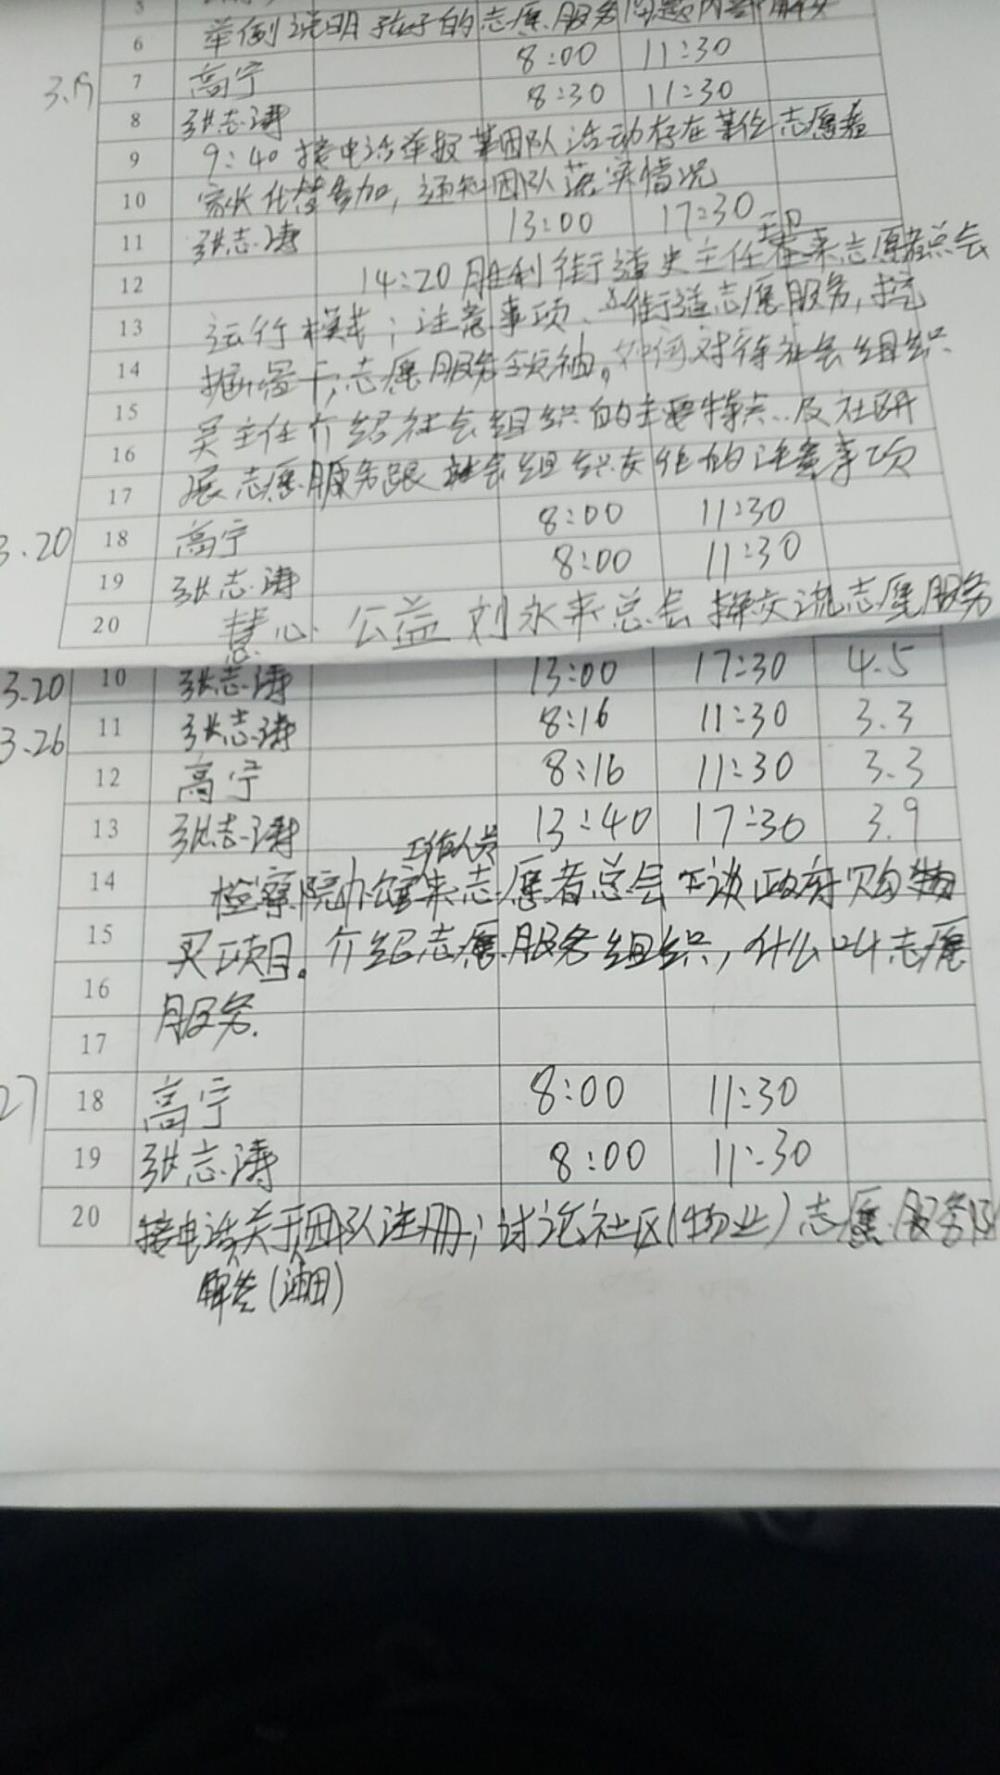 6 举例说明孩子的志愿服务问题内容解决
3.19 7 高宁 8:00 11:30
8 张志涛 8:30 11:30
9 9:40接电话举报某团队活动存在某位志愿者
10 家长代替参加,通知团队落实情况
11 张志涛 13:00 17:30
12 14:20胜利街道史主任 来志愿者总会
13 运行模式;注意事项、 街道志愿服务,挖
14 掘骨干,志愿服务领袖。如何对待社会组织
15 吴主任介绍社会组织的主要特点.及社区开
16 展志愿服务跟社会组织友作的注意事项
17 8:00 11:30
3.20 18 高宁
19 张志涛 8:00 11:30
20 慧心公益刘永来总会 交流志愿服务
3.20 10 张志涛 13:00 17:30 4.5
3.26 11 张志涛 8:16 11:30 3.3
12 高宁 8:16 11:30 3.3
13 张志涛 13:40 17:30 3.9
工作人员
14 检察院 来志愿者总会 谈政府购
15 买项目。介绍志愿服务组织,什么叫志愿
16 服务.
17
27 18 高宁 8:00 11:30
19 张志涛 8:00 11:30
20 接电话关于团队注册;讨论社区(物业)志愿服务
解答(油田)